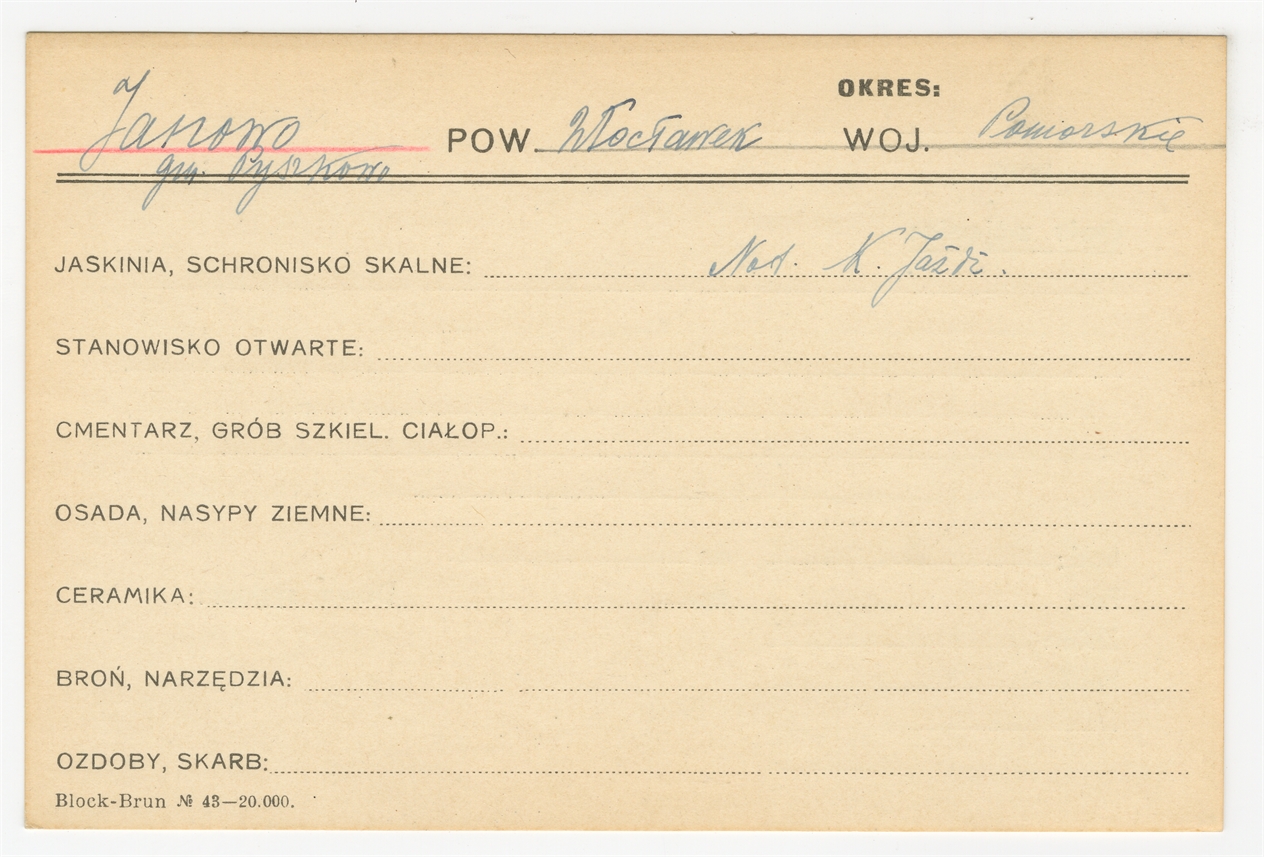 OKRES:
Janowo POW. Włocławek WOJ. Pomorskie
gm. Pyszkowo
JASKINIA, SCHRONISKO SKALNE: Not. K. Jażdż.
STANOWISKO OTWARTE:
CMENTARZ, GRÓB SZKIEL. CIAŁOP.:
OSADA, NASYPY ZIEMNE:
CERAMIKA:
BROŃ, NARZĘDZIA:
OZDOBY, SKARB:
Block-Brun № 43—20.000.